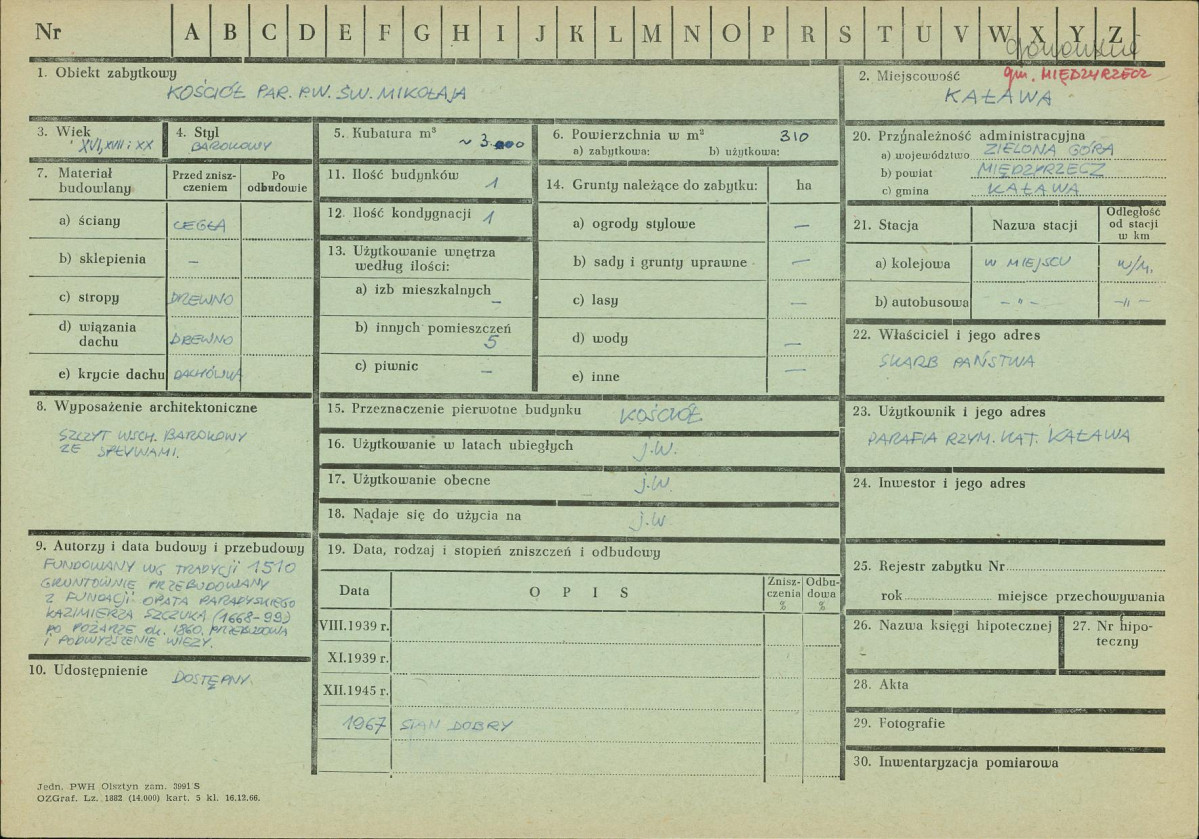 Nr A B C D E F G H I J K L M N O P R S T U V W X Y Z
1. Obiekt zabytkowy
KOŚCIÓŁ PAR. P.W. ŚW. MIKOŁAJA
2. Miejscowość
gm. MIĘDZYRZECZ
KAŁAWA
3. Wiek
XVI, XVII i XX
4. Styl
BAROKOWY
5. Kubatura m³
~ 3.000
6. Powierzchnia w m²
310
a) zabytkowa: b) użytkowa:
7. Materiał budowlany
Przed zniszczeniem
Po odbudowie
a) ściany CEGŁA
b) sklepienia –
c) stropy DREWNO
d) wiązania dachu DREWNO
e) krycie dachu DACHÓWKA
8. Wyposażenie architektoniczne
SZCZYT WSCH. BAROKOWY
ZE SPŁYWAMI.
9. Autorzy i data budowy i przebudowy
FUNDOWANY WG TRADYCJI 1510
GRUNTOWNIE PRZEBUDOWANY
Z FUNDACJI OPATA PARADYSKIEGO
KAZIMIERZA SZCZUKA (1668-99)
PO POŻARZE OK. 1860. PRZEBUDOWA
I PODWYŻSZENIE WIEŻY.
10. Udostępnienie
DOSTĘPNY.
11. Ilość budynków 1
12. Ilość kondygnacji 1
13. Użytkowanie wnętrza
według ilości:
a) izb mieszkalnych –
b) innych pomieszczeń 5
c) piwnic –
14. Grunty należące do zabytku: ha
a) ogrody stylowe –
b) sady i grunty uprawne –
c) lasy –
d) wody –
e) inne –
15. Przeznaczenie pierwotne budynku KOŚCIÓŁ
16. Użytkowanie w latach ubiegłych j.w.
17. Użytkowanie obecne j.w.
18. Nadaje się do użycia na j.w
19. Data, rodzaj i stopień zniszczeń i odbudowy
Data OPIS Zniszczenia % Odbudowa %
VIII.1939 r.
XI.1939 r.
XII.1945 r.
1967 STAN DOBRY
20. Przynależność administracyjna
a) województwo ZIELONA GÓRA
b) powiat MIĘDZYRZECZ
c) gmina KAŁAWA
21. Stacja Nazwa stacji Odległość od stacji w km
a) kolejowa W MIEJSCU W/M.
b) autobusowa – " – –"–
22. Właściciel i jego adres
SKARB PAŃSTWA
23. Użytkownik i jego adres
PARAFIA RZYM. KAT. KAŁAWA
24. Inwestor i jego adres
25. Rejestr zabytku Nr
rok miejsce przechowywania
26. Nazwa księgi hipotecznej
27. Nr hipoteczny
28. Akta
29. Fotografie
30. Inwentaryzacja pomiarowa
Jedn. PWH Olsztyn zam. 3991 S
OZGraf. Lz. 1882 (14.000) kart. 5 kl. 16.12.66.